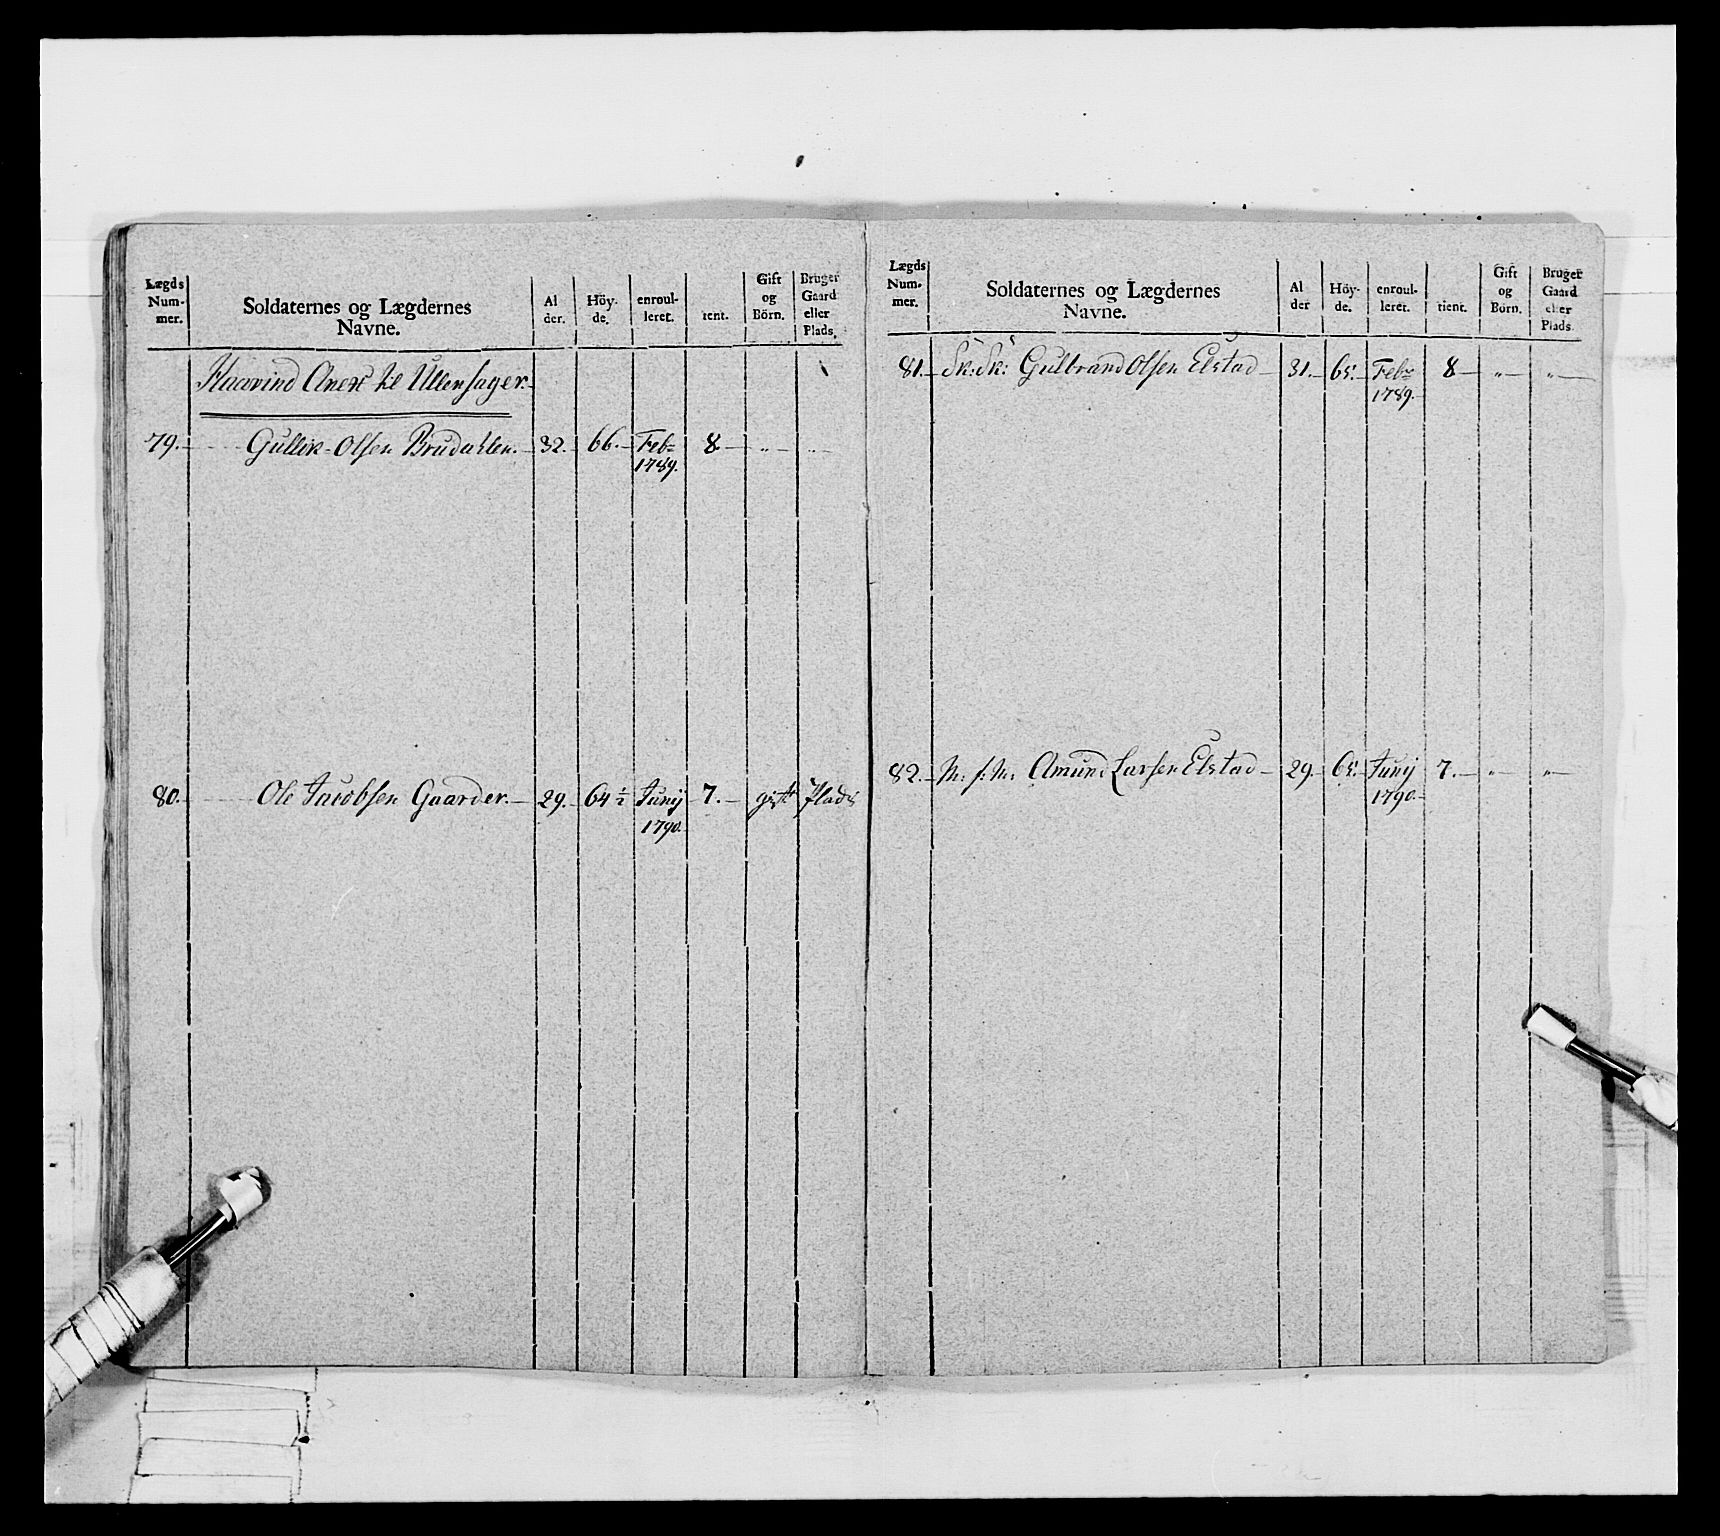 Lægds Num- mer.
Soldaternes og Lægdernes Navne.
Al der.
Höy- de.
enroul- leret.
tient.
Gift og Börn.
Bruger Gaard eller Plads.
Haavind Anex til Ullensager.
79. Gullik Olsen Brudahlen. 32. 66. Febr 8 " "
1789.
80. Ole Jacobsen Gaarder. 29. 64 1/2 Junij 7. gift Plads
1790.
Lægds Num- mer.
Soldaternes og Lægdernes Navne.
Al der
Höy- de.
enroul- leret.
tient.
Gift og Börn.
Bruger Gaard eller Plads.
81. Sk: Sk: Gulbrand Olsen Elstad 31. 65. Febr 8 " "
1789.
82. Amund Larsen Elstad 29. 65. Junij 7. " "
1790.